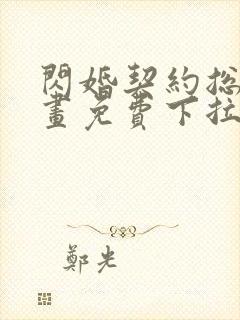 閃婚契約総
畫免費下拉
鄭光